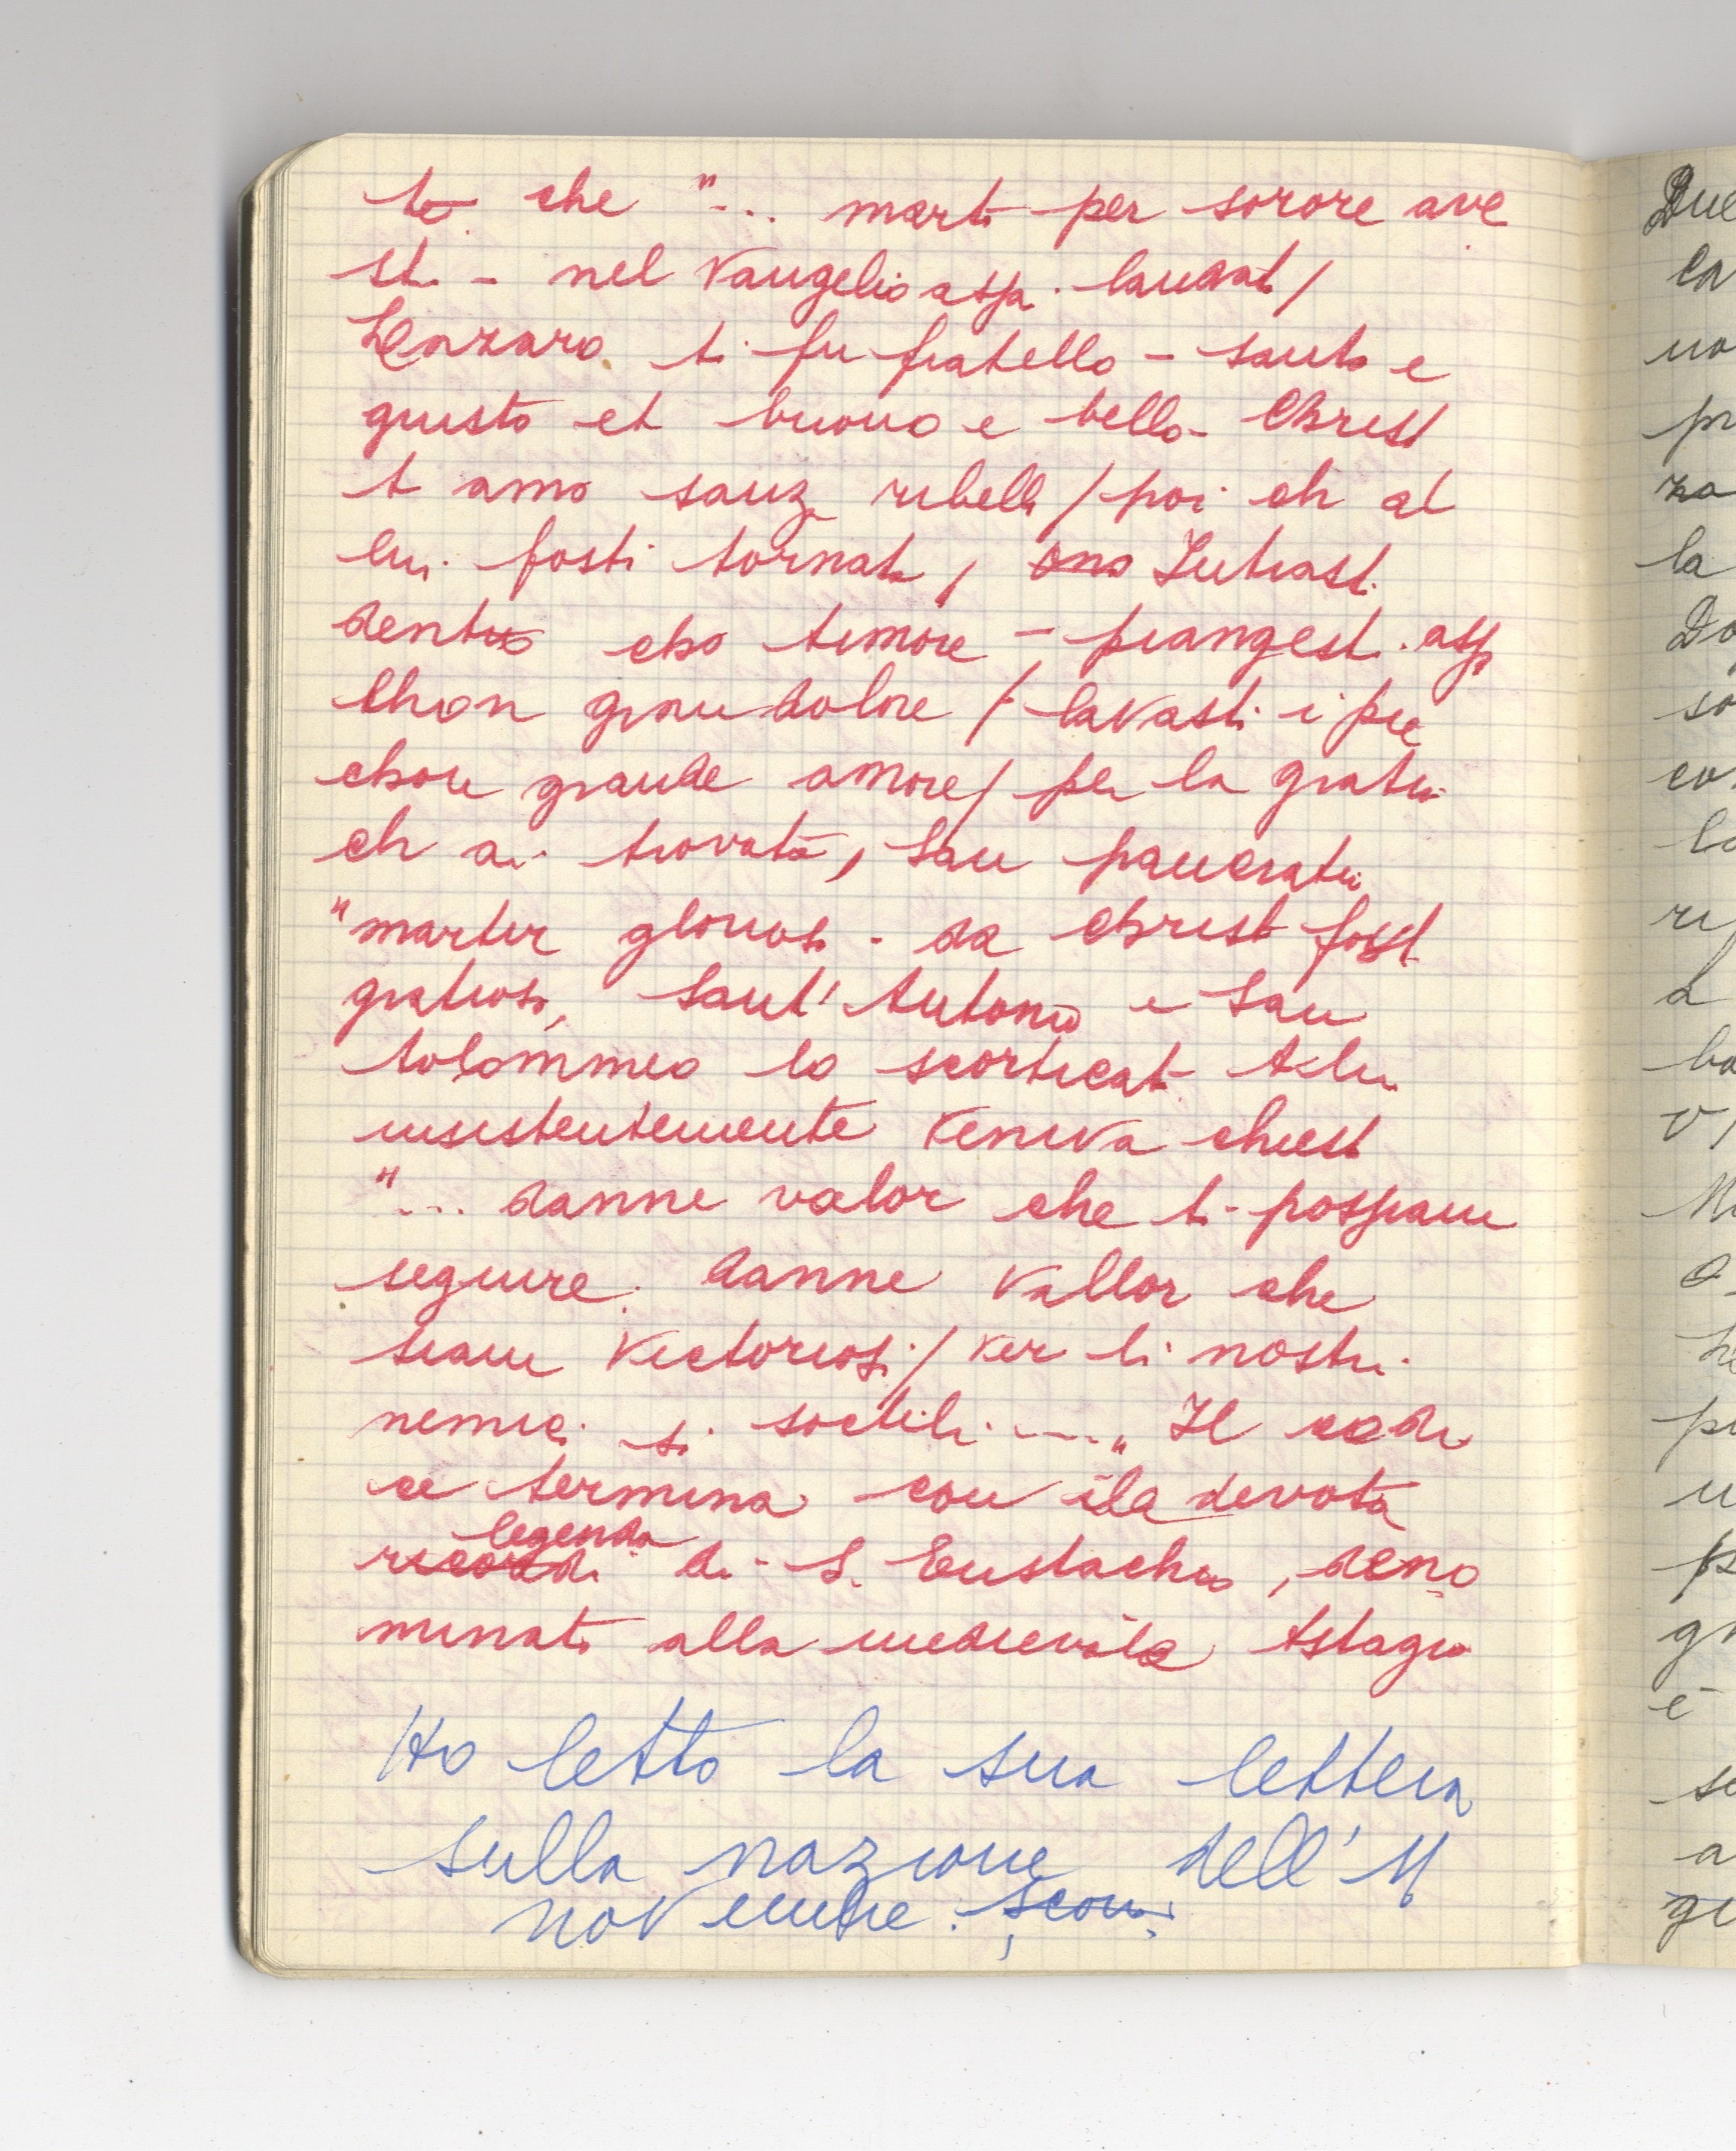 to che "... marta per sorore ave
sti - nel Vangelio assa. laudata /
Lazzaro ti fu fratello - santo e
giusto et buono e bello - Christ
t amo sanza ribello / poi ch a
lui fosti tornata, Intrasti
dentro cho timore - piangesti assa
Chon gran dolore / lavasti i pie
chon grande amore / per la gratia
ch ai trovata, San pancratio
"martir glorioso - da Christo fosti
gratioso, Sant'Antonio e San
tolommeo lo scorticato. A lui
insistentemente veniva chiesto
"... danne valor che ti possiam
seguire. Danne vallor che
siam victoriosi / ver li nostri
nemici si soctili ...." Il codi
ce termina con la devota
legenda di S. Eustachio, deno
minato alla medievale Astagio
Ho letto la sua lettera
sulla nazione dell'11
novembre.
Due
la
Do
so